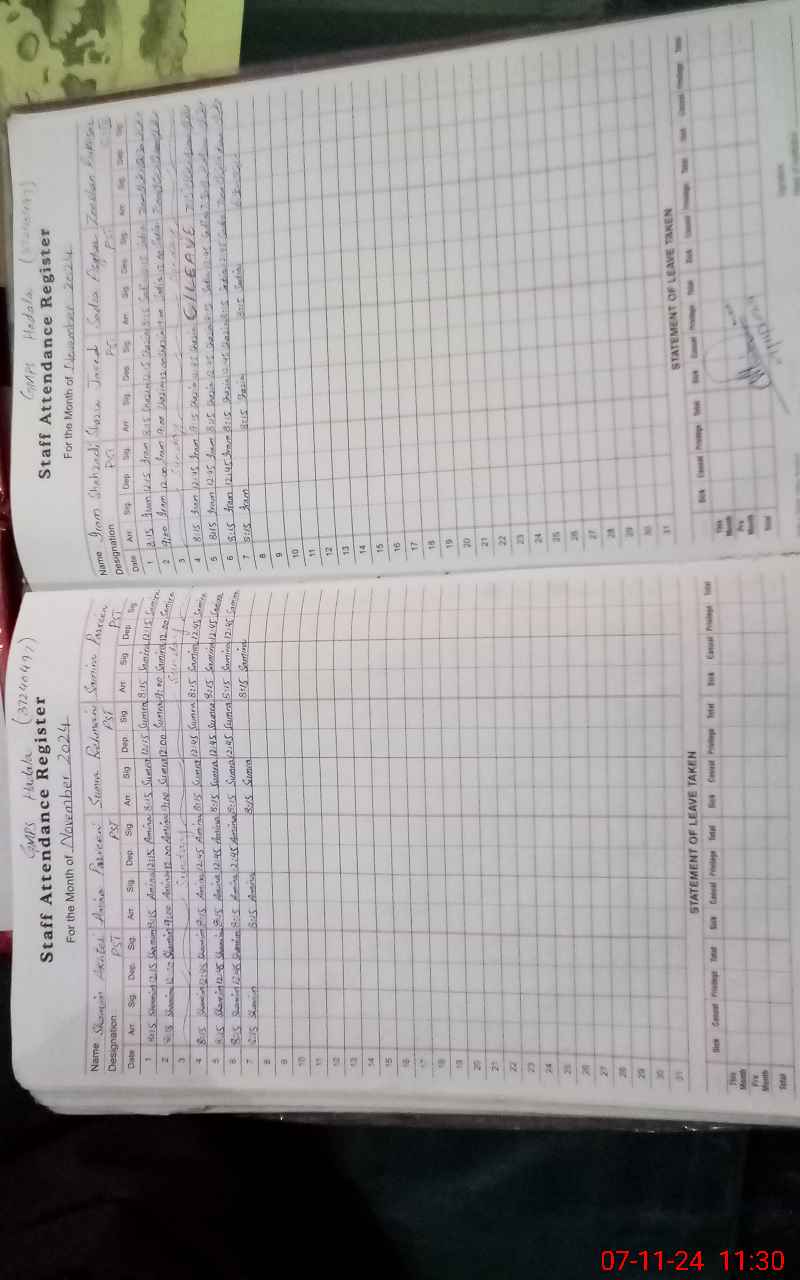 GMPS Hadala (37240497)
Staff Attendance Register
For the Month of November 2024
Name Shamim Akhter Amina Parveen Sumra Rehman Samina Parveen
Designation PST PST PST PST
Date Arr Sig. Dep. Sig. Arr Sig. Dep. Sig. Arr Sig Dep. Sig. Arr Sig Dep. Sig
1 8:15 Shamim 12:15 Shamim 8:15 Amina 12:15 Amina 8:15 Sumra 12:15 Sumra 8:15 Samina 12:15 Samina
2 Shamim Shamim 9:00 Amina 12:00 Amina 9:00 Sumra 12:00 Sumra 9:00 Samina 12:00 Samina
3 Sunday Sunday
4 8:15 Shamim 12:45 Shamim 8:15 Amina 12:45 Amina 8:15 Sumra 12:45 Sumra 8:15 Samina 12:45 Samina
5 8:15 Shamim 12:45 Shamim 8:15 Amina 12:45 Amina 8:15 Sumra 12:45 Sumra 8:15 Samina 12:45 Samina
6 8:15 Shamim 12:45 Shamim 8:15 Amina 12:45 Amina 8:15 Sumra 12:45 Sumra 8:15 Samina 12:45 Samina
7 8:15 Shamim 8:15 Amina 8:15 Sumra 8:15 Samina
8
9
10
11
12
13
14
15
16
17
18
19
20
21
22
23
24
25
26
27
28
29
30
31
STATEMENT OF LEAVE TAKEN
Sick Casual Privilege Total Sick Casual Privilege Total Sick Casual Privilege Total Sick Casual Privilege Total
This Month
Prv Month
Total
GMPS Hadala (37240497)
Staff Attendance Register
For the Month of November 2024
Name Iram Shahzadi Shazia Javed Sadia
Designation PST PST PST
Date Arr Sig. Dep Sig. Arr Sig. Dep. Sig. Arr Sig. Dep. Sig. Arr Sig. Dep. Sig.
1 8:15 Iram 12:15 Iram 8:15 Shazia 12:15 Shazia 8:15 Sadia 12:15 Sadia
2 9:00 Iram 12:00 Iram 9:00 Shazia 12:00 Shazia Sadia 12:00 Sadia
3 Sunday Sunday
4 8:15 Iram 12:45 Iram 8:15 Shazia 12:45 Shazia C/LEAVE
5 8:15 Iram 12:45 Iram 8:15 Shazia 12:45 Shazia 8:15 Sadia 12:45 Sadia
6 8:15 Iram 12:45 Iram 8:15 Shazia 12:45 Shazia 8:15 Sadia 12:45 Sadia
7 8:15 Iram 8:15 Shazia 8:15 Sadia
8
9
10
11
12
13
14
15
16
17
18
19
20
21
22
23
24
25
26
27
28
29
30
31
STATEMENT OF LEAVE TAKEN
Sick Casual Privilege Total Sick Casual Privilege Total Sick Casual Privilege Total Sick Casual Privilege Total
This Month
Prv Month
Total
07-11-24 11:30